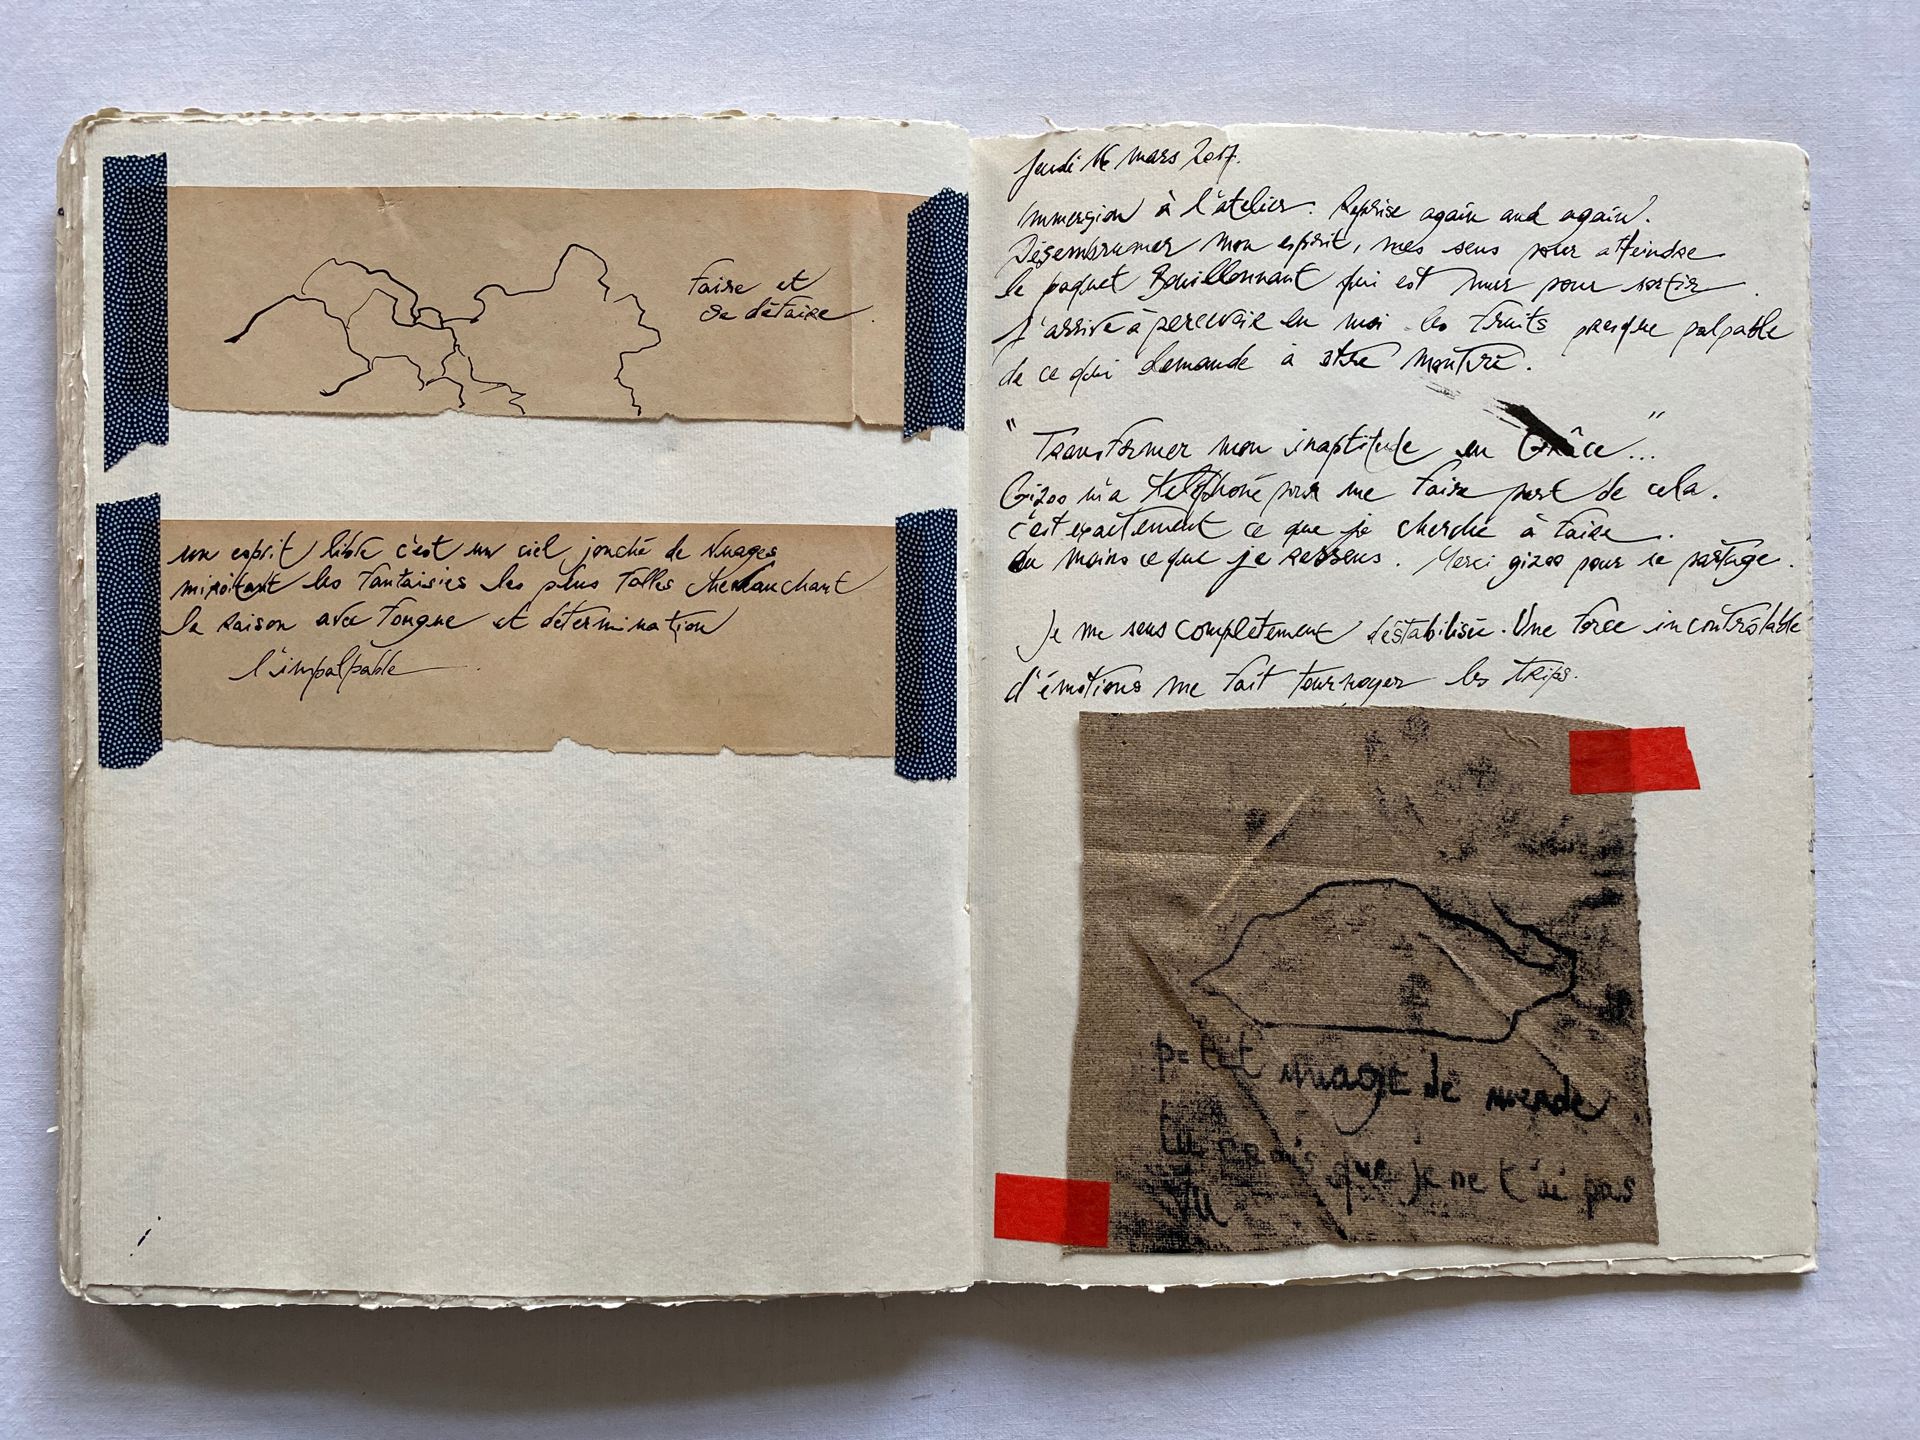 Faire et
se défaire.
un esprit libre c'est un ciel jonché de nuages
miroitant les fantaisies les plus folles chevauchant
la raison avec fougue et détermination
l'impalpable
Jeudi 16 mars 2017.
Immersion à l'atelier. Reprise again and again.
Désembrumer mon esprit, mes sens pour atteindre
le paquet Bouillonnant qui est mur pour sortir.
J'arrive à percevoir en moi les fruits presque palpable
de ce qui demande à être montré.
"Transformer mon inaptitude en Grâce..."
Gizoo m'a téléphoné pour me faire part de cela.
c'est exactement ce que je cherche à faire..
du moins ce que je ressens. Merci gizoo pour ce partage.
Je me sens complètement déstabilisée. Une force incontrôlable
d'émotions me fait tournoyer les trips.
petit nuage de merde
tu crois que je ne t'ai pas
vu